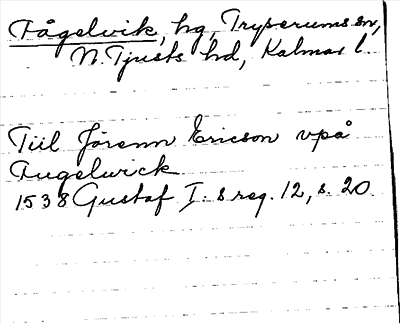 Fågelvik, hg, Tryserums sn,
N. Tjusts hd, Kalmar l.
Tiil Jörenn Ericson vpå
Fugelwick
1538 Gustaf I:s reg. 12, s. 20.